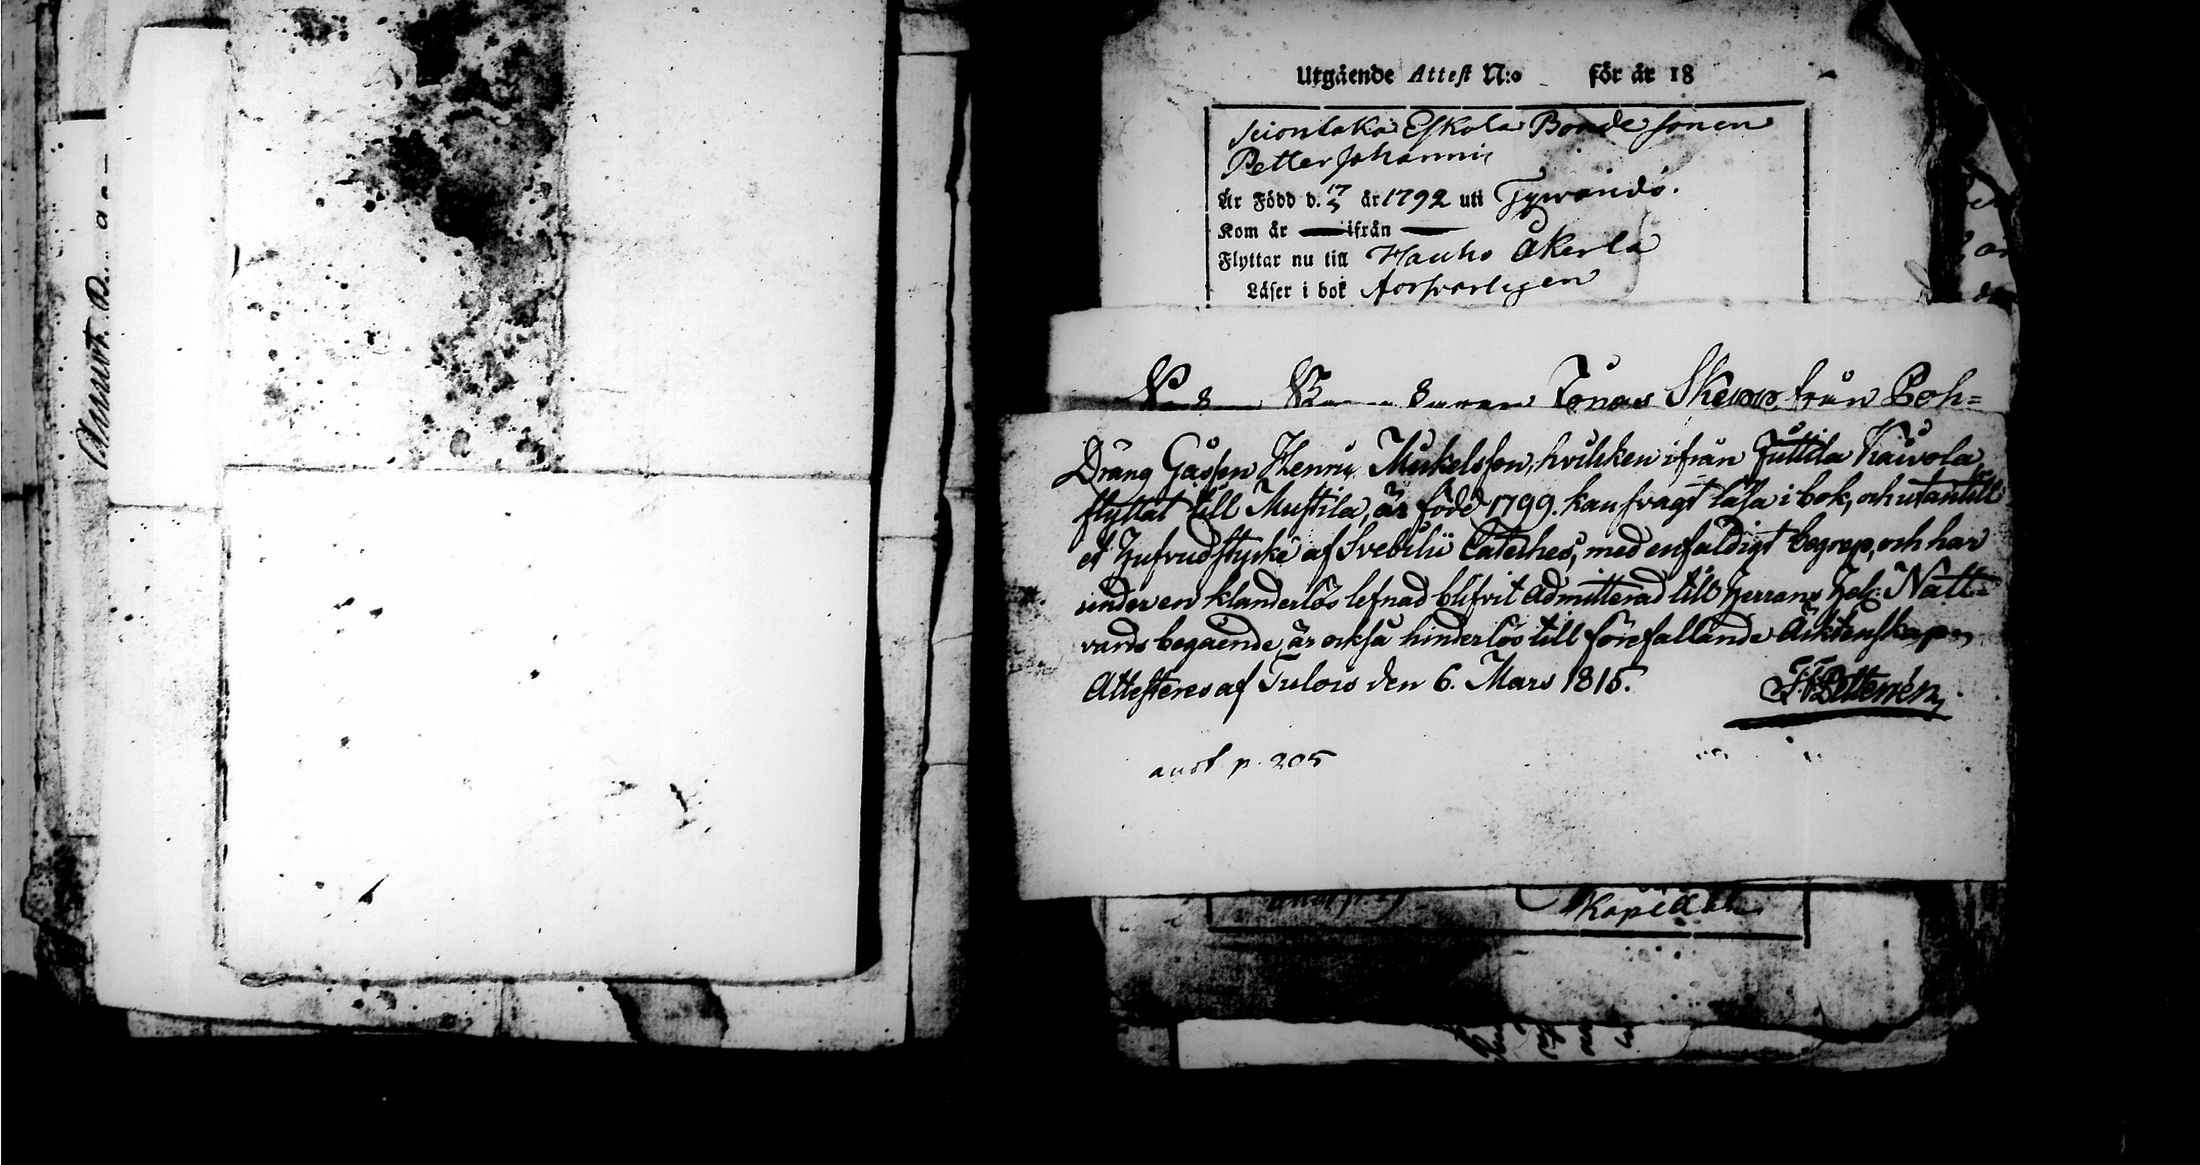 Utgående Attest N:o för år 18
Eskola Bonde sonen
Petter Johannis
Är Född d. 17/5 år 1792 uti Tyrvändö.
Kom år — ifrån —
Flyttar nu till Hauho Åkerla
Läser i bok forsvarligen
Jonas från Poh=
Dräng Gåssen Henric Mickelsson, hvilcken ifrån Juttila Kaivola
flyttat till Mustila, är född 1799. kan svagt läsa i bok, och utantill
et hufvudstycke af Svebilii Cateches, med enfaldigt begrep, och har
under en klanderlös lefnad blifvit admitterad till Herrans Hel: Natt=
vards begående, är också hinderlös till förefallande Äcktenskap,
Attesteres af Tulois den 6. Mars 1815.
anot p. 205
Kapellan